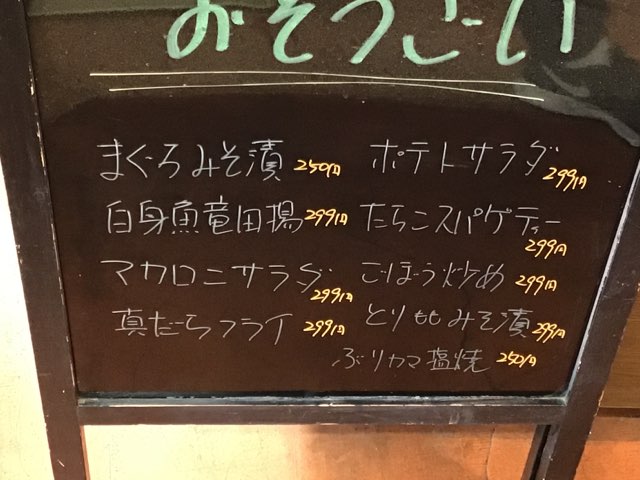 おそうざい
まぐろみそ漬 250円
白身魚竜田揚 299円
マカロニサラダ 299円
真だらフライ 299円
ポテトサラダ 299円
たらこスパゲティー 299円
ごぼう炒め 299円
とりももみそ漬 299円
ぶりカマ塩焼 250円